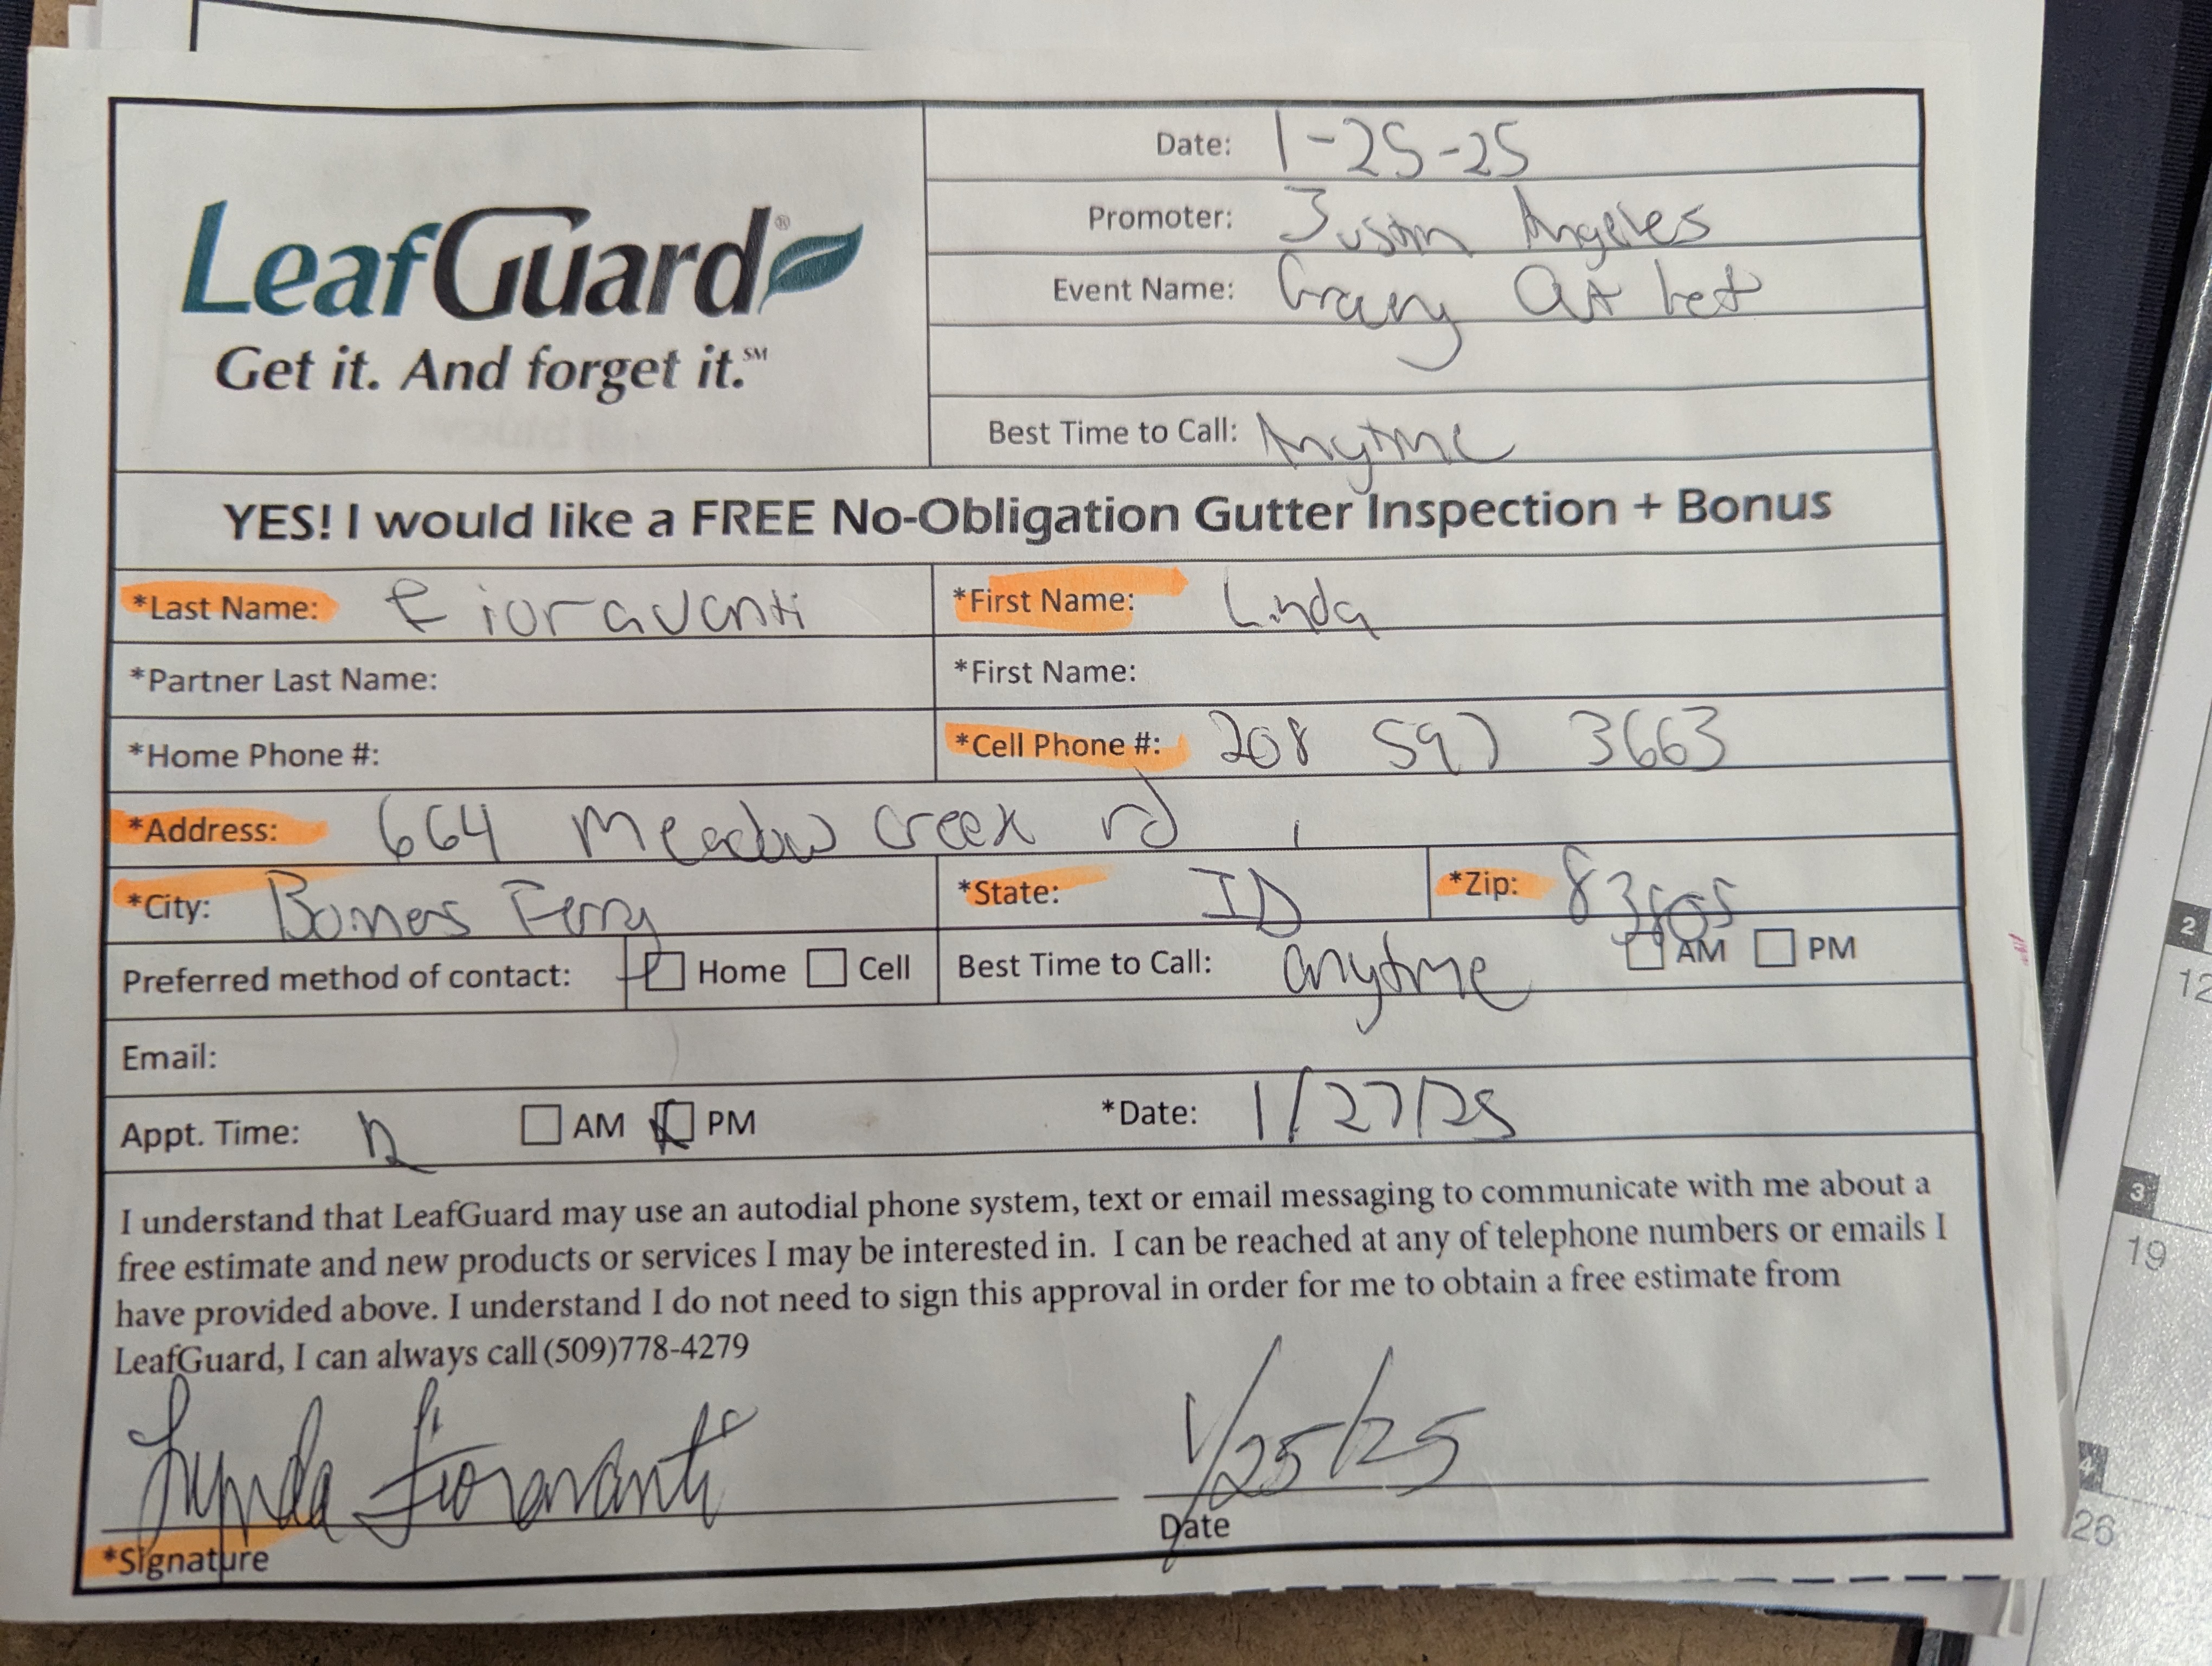 Date: 1-25-25
Promoter: Justin Angeles
LeafGuard®
Get it. And forget it.℠
Event Name:
Best Time to Call: Anytime
YES! I would like a FREE No-Obligation Gutter Inspection + Bonus
*Last Name: Fioravanti *First Name: Linda
*Partner Last Name: *First Name:
*Home Phone #: *Cell Phone #: 208 597 3663
*Address: 664 Meadow Creek rd
*City: Bonners Ferry *State: ID *Zip:
Preferred method of contact: Home Cell Best Time to Call: anytime AM PM
Email:
Appt. Time: 12 AM PM *Date: 1/27/25
I understand that LeafGuard may use an autodial phone system, text or email messaging to communicate with me about a
free estimate and new products or services I may be interested in. I can be reached at any of telephone numbers or emails I
have provided above. I understand I do not need to sign this approval in order for me to obtain a free estimate from
LeafGuard, I can always call (509)778-4279
Lynda Fioravanti 1/25/25
*Signature Date
2
12
3
19
4
26